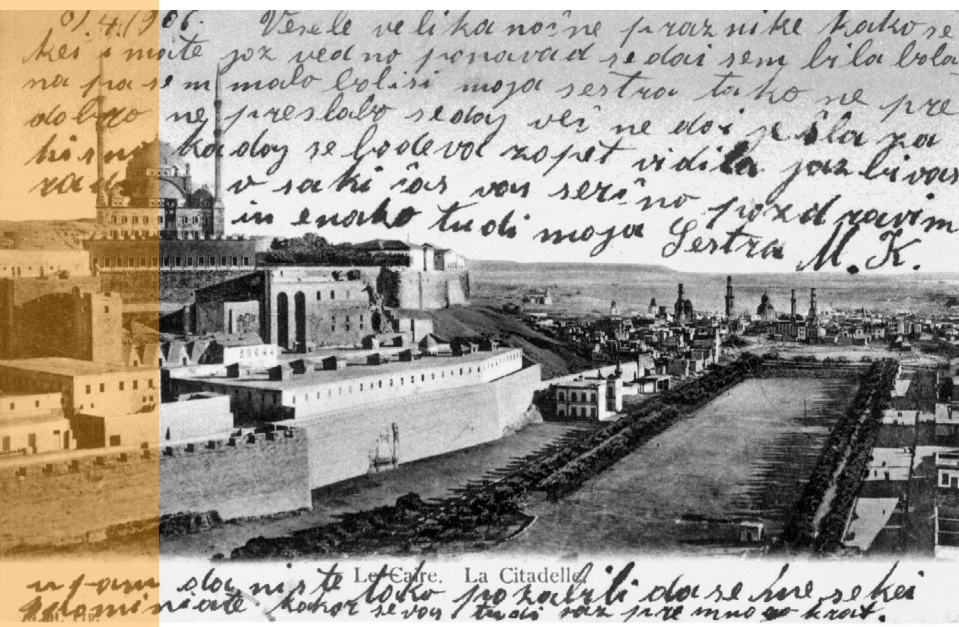 4. 1906. Vesele velikanočne praznike kako se
kei i mate joz vedno ponavad sedai sem bila bola
na pa sem malo bolisi moja sestra tako ne pre
dobro ne preslabo sedaj več ne doi je šla za
kadaj se bodeva zopet vidila jaz bivas
v saki čas vas serčno pozdravim
in enako tudi moja Sestra M. K.
Le Caire. La Citadelle.
upam da niste tako pozabli da se me sekei
kakor se vas tudi jaz pre mnogo krat.